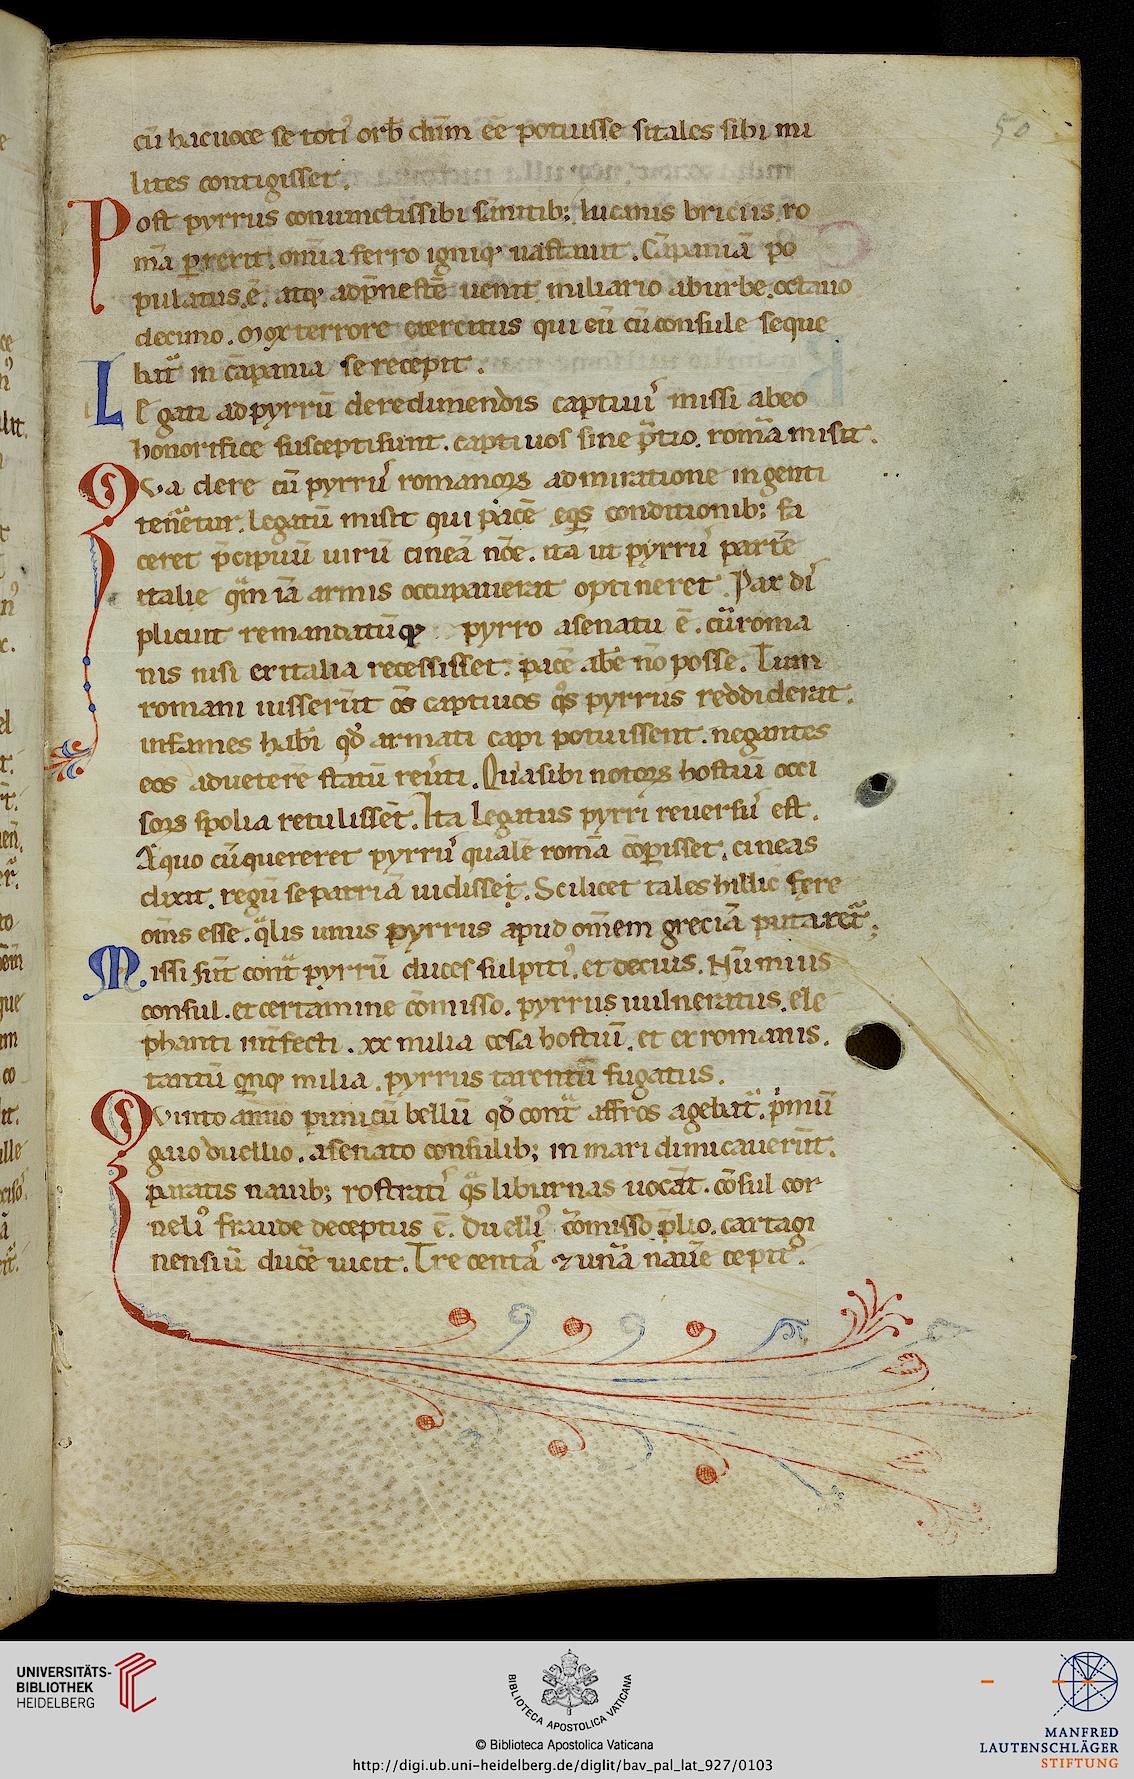 cū hac uoce se toti᷒ orb̄ dn̄m ēē potuisse si tales sibi mi
lites contigisset.
Post pyrrus coniunctis sibi sānitib; lucanis briciis ro
mā ꝑrexit. om̄ia ferro igniq; uastauit. Cāpaniā po
pulatus.ē. atq; ad p̄nestē uenit miliario ab urbe. octauo
decimo. Mox terrore exercitus qui eū cū consule seque
bat̄ in cāpania se recepit.
Legati ad pyrrū de redimendis captiui᷒ missi ab eo
honorifice suscepti sunt. captiuos sine p̄tio. romā misit.
Qua de re cū pyrru᷒ romanoꝝ admiratione ingenti
tenēetur. legatū misit qui pacē eq̄s conditionib; fa
ceret p̄cipuū uirū cineā nōe. ita ut pyrru᷒ partē
italie q̄m iā armis occupauerat optineret. Pax di᷒
plicuit remandatūq; pyrro a senatu ē. cū roma
nis nisi ex italia recessisset. pacē ab̄e nō posse. Tum
romani iusserūt oēs captiuos q̄s pyrrus reddiderat.
infames hab̄i qđ armati capi potuissent. negantes
eos ad ueterē statū reuti. Qua si bi notoꝝ hostiū occi
soꝝ spolia retulissēt. Ita legatus pyrri reuersu᷒ est.
A quo cū quereret pyrru᷒ qualē romā cōꝑisset. cineas
dixit. regū se patriā uidisset. Scilicet tales hillic fere
om̄s esse. q̄lis unus pyrrus apud om̄em greciā putaret̄;
Missi sūt cont̄ pyrrū duces sulpiti᷒. et decius. Nūmius
consul. et certamine cōmisso. pyrrus uulneratus. ele
phanti int̄fecti. xx milia cesa hostiū. et ex romanis.
tantū qnq; milia. pyrrus tarentū fugatus.
Quinto anno punicū bellū qđ cont̄ affros agebat̄. p̄mū
gaio duellio. a senato consulib; in mari dimicauerūt.
paratis nauib; rostrati᷒ q̄s liburnas uocāt. cōsul cor
neli᷒ fraude deceptus ē. Duelli᷒ cōmisso p̄lio. cartagi
nensiū ducē uicit. Trecenta᷒ ⁊ unā nauē cepit.
50
UNIVERSITÄTS-
BIBLIOTHEK
HEIDELBERG
BIBLIOTECA APOSTOLICA VATICANA
© Biblioteca Apostolica Vaticana
http://digi.ub.uni-heidelberg.de/diglit/bav_pal_lat_927/0103
MANFRED
LAUTENSCHLÄGER
STIFTUNG